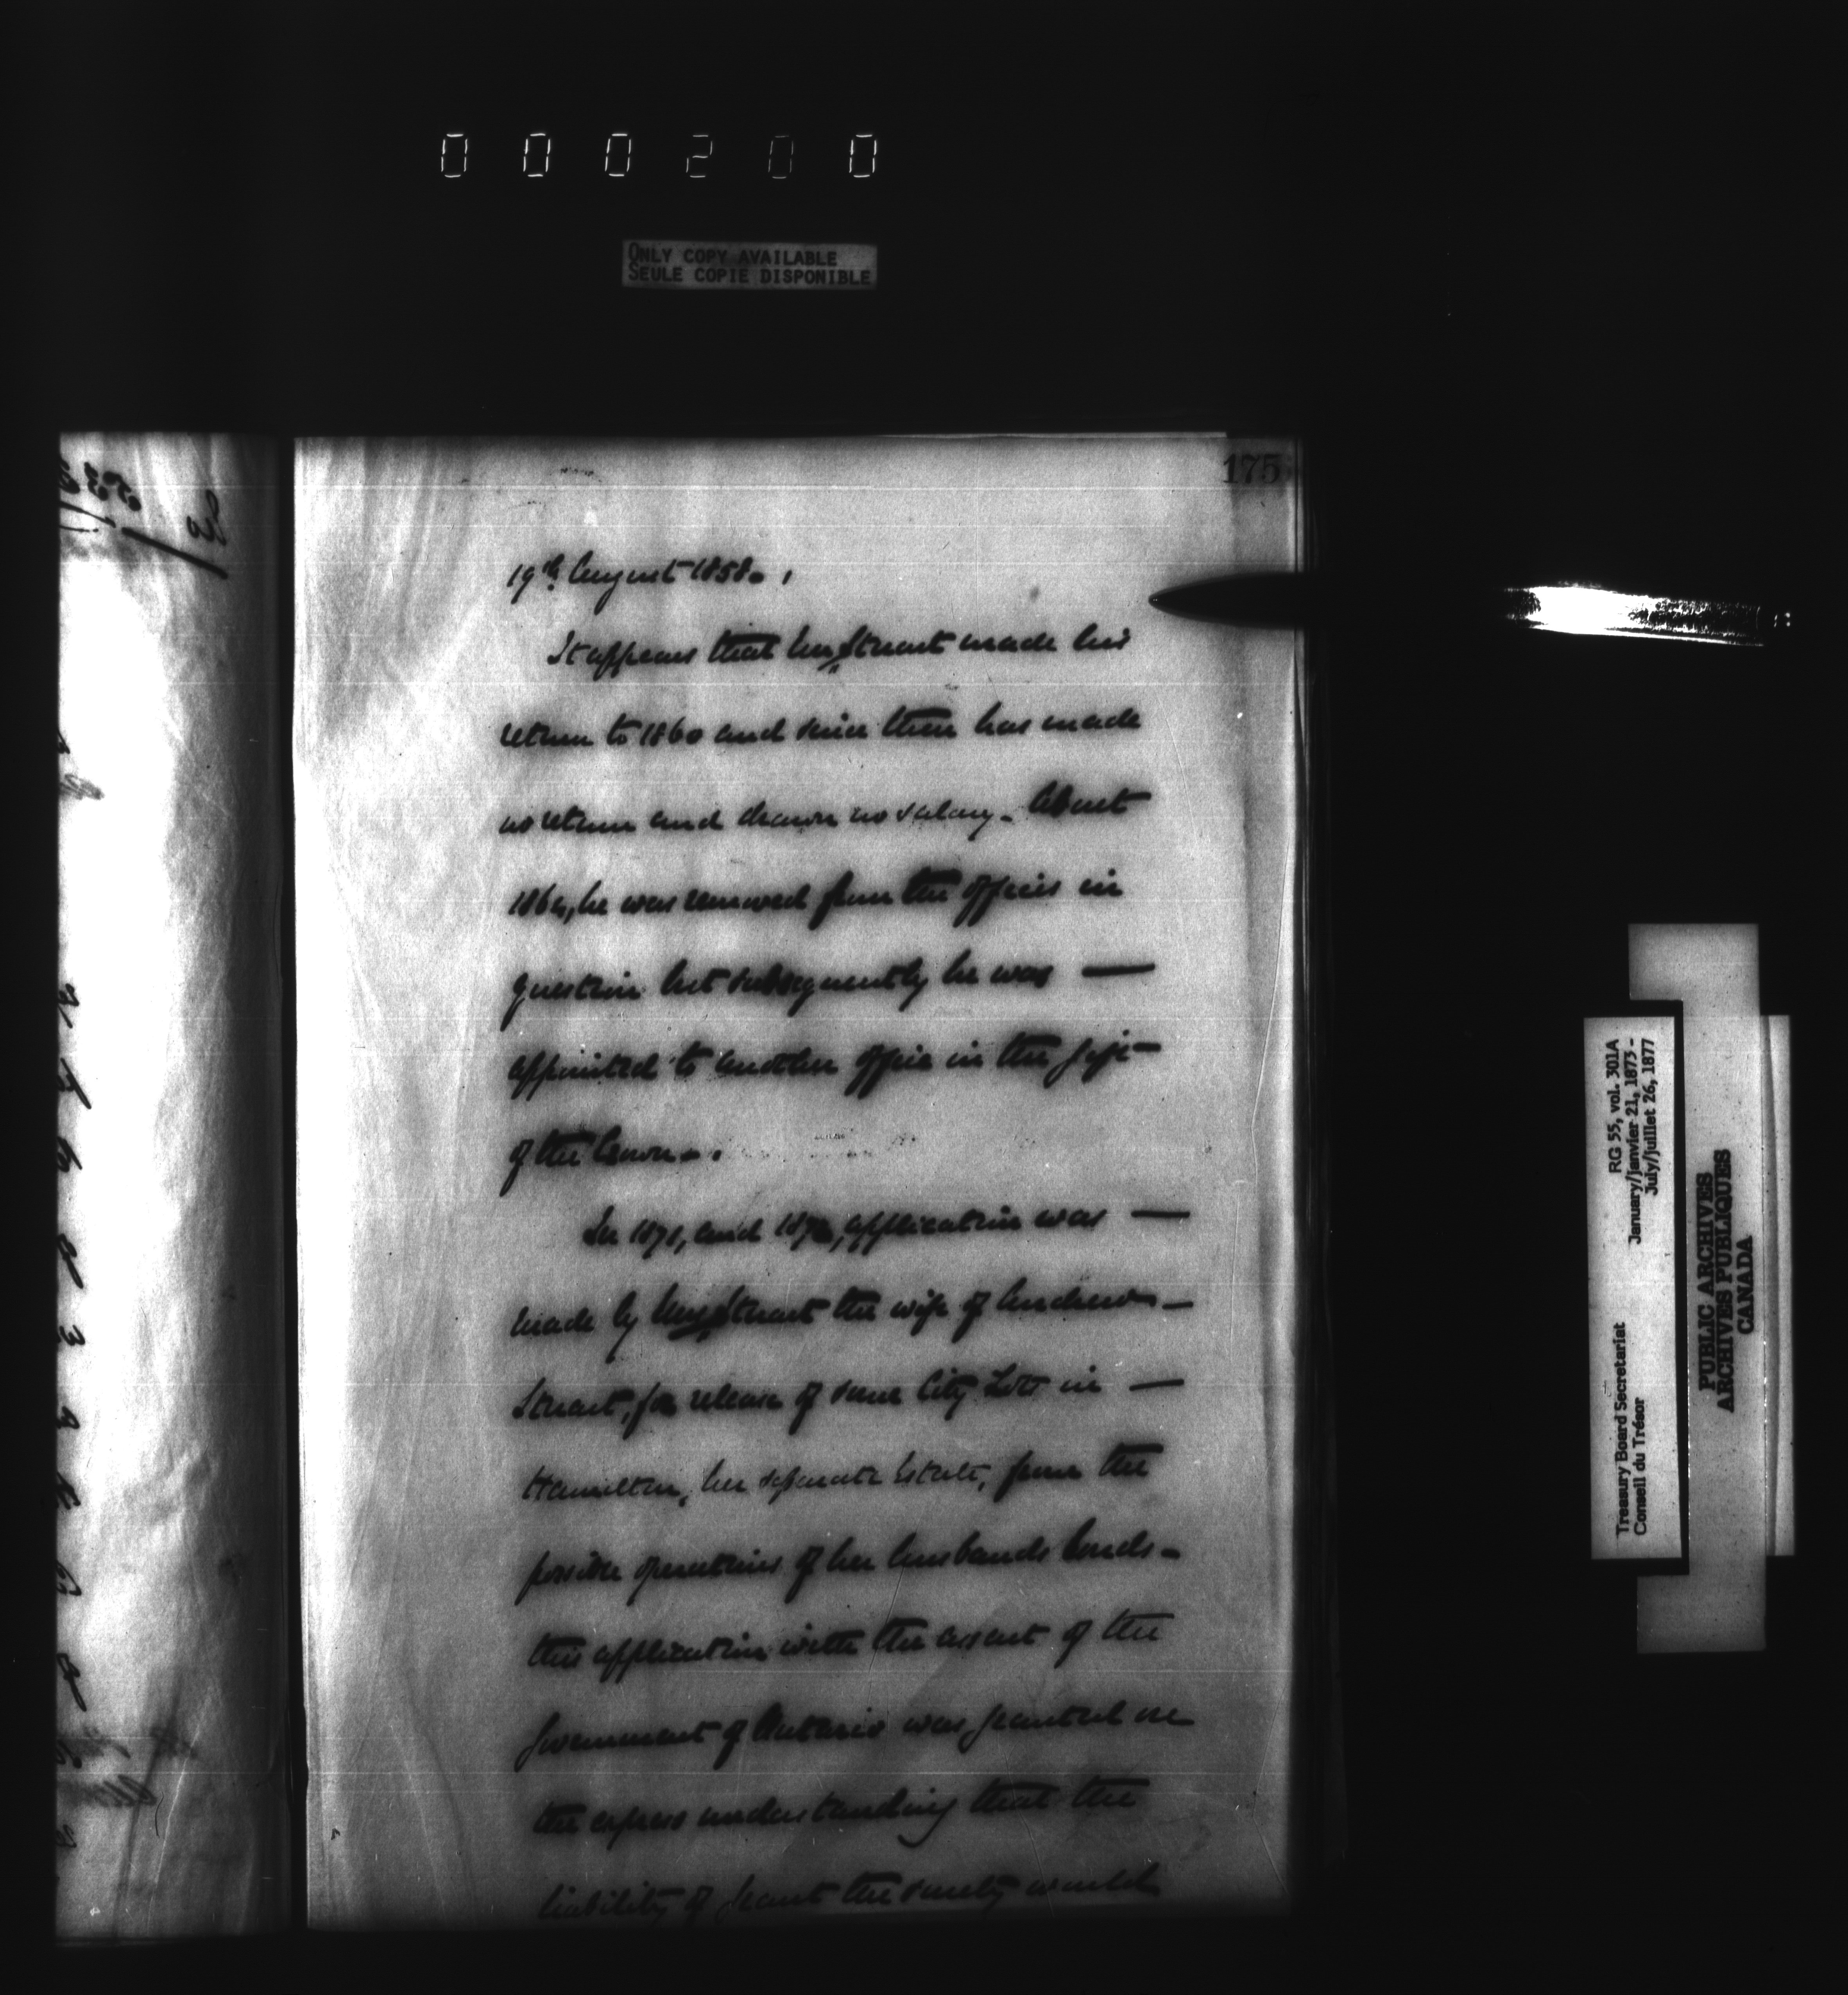 000200
ONLY COPY AVAILABLE
SEULE COPIE DISPONIBLE
175
19th August 1858.
It appears that Stuart made his
return to 1860 and since then has made
no return and drawn no salary. About
1864, he was removed from the offices in
question but subsequently he was —
appointed to another office in the gift
of the Crown.
In 1871, and application was —
made by Stuart the wife of Andrew —
Stuart, for release of some City Lots in —
Hamilton, her separate Estate, from the
possible operations of her husbands bonds.
this application with the assent of the
Government of Ontario was granted on
the express understanding that the
liability of Grant the surety would
RG 55, vol. 301A
January/janvier 21, 1873 -
July/juillet 26, 1877
Treasury Board Secretariat
Conseil du Trésor
PUBLIC ARCHIVES
ARCHIVES PUBLIQUES
CANADA